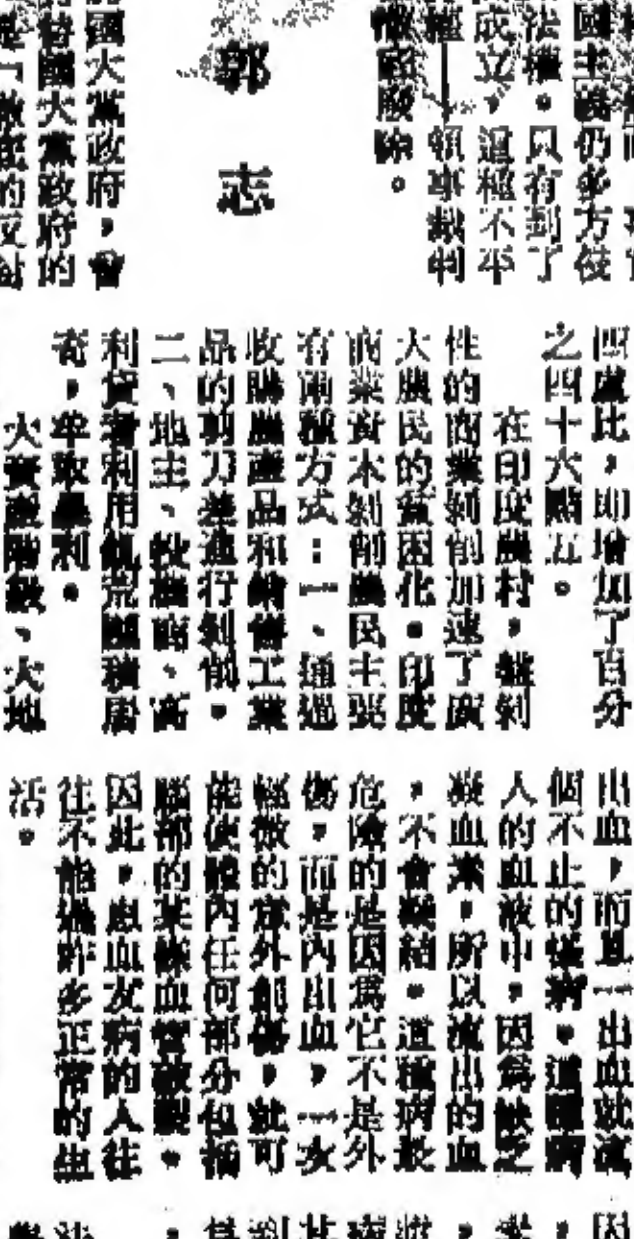 國主義仍多方
法權。只有到了
成立，這種不平
權——領事裁判
徹底廢除。
郭志
國大黨政府，曾
國大黨政府的
四盧比，即增加了百分
之四十六點五。
在印度農村，盤剝
性的商業剝削加速了廣
大農民的貧困化。印度
商業資本剝削農民主要
有兩種方式：一、通過
收購農產品和銷售工業
品的剪刀差進行剝削。
二、地主、投機商、高
利貸者利用饑荒囤積居
奇，牟取暴利。
大資產階級、大地
出血，而且一出血就流
個不止的怪病。這種病
人的血液中，因爲缺乏
凝血素，所以流出的血
，不會凝結。這種病最
危險的是因爲它不是外
傷，而是內出血，一次
輕微的意外創傷，就可
能使體內任何部分包括
腦部的某條血管破裂。
因此，患血友病的人往
往不能過許多正常的生
活。